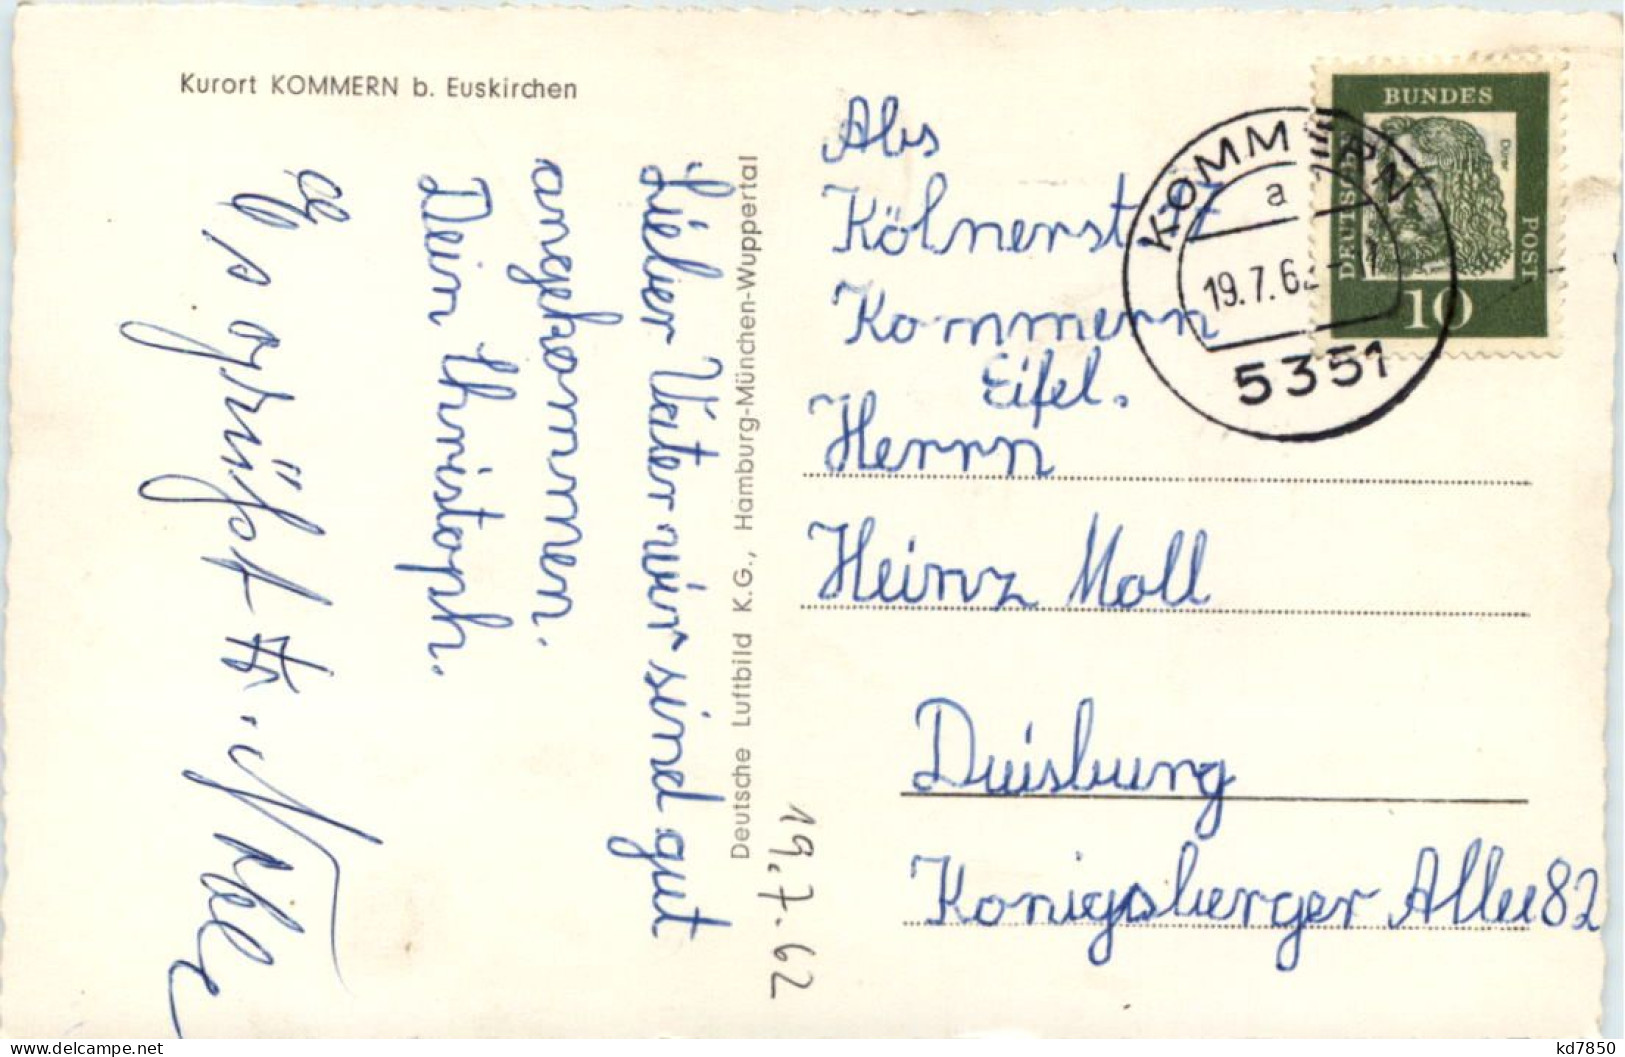 Kurort KOMMERN b. Euskirchen
Lieber Vater wir sind gut
angekommen.
Dein Christoph.
Es grüßt
Deutsche Luftbild K.G., Hamburg-München-Wuppertal
19.7.62
Abs
Kölnerst
Kommern
Eifel.
Herrn
Heinz Moll
Duisburg
Konigsberger Allee 82
KOMMERN
a
19.7.62
5351
BUNDES
DEUTSCHE
POST
Dürer
10
delcampe.net
kd7850